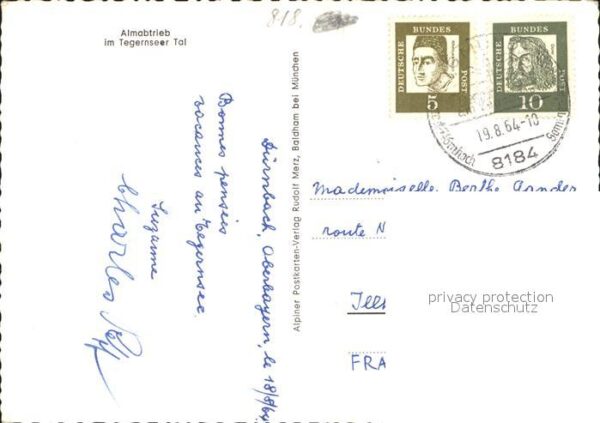 Almabtrieb
im Tegernseer Tal
818.
Alpiner Postkarten-Verlag Rudolf Merz, Baldham bei München
Dürnbach, Oberbayern, le 18/8/64
Bonnes pensées
vacances au Tegernsee.
Suzanne
Charles
DEUTSCHE
BUNDES
POST
5
DEUTSCHE
BUNDES
POST
10
19.8.64-10
8184
Mademoiselle Berthe
route N
FRA
privacy protection
Datenschutz